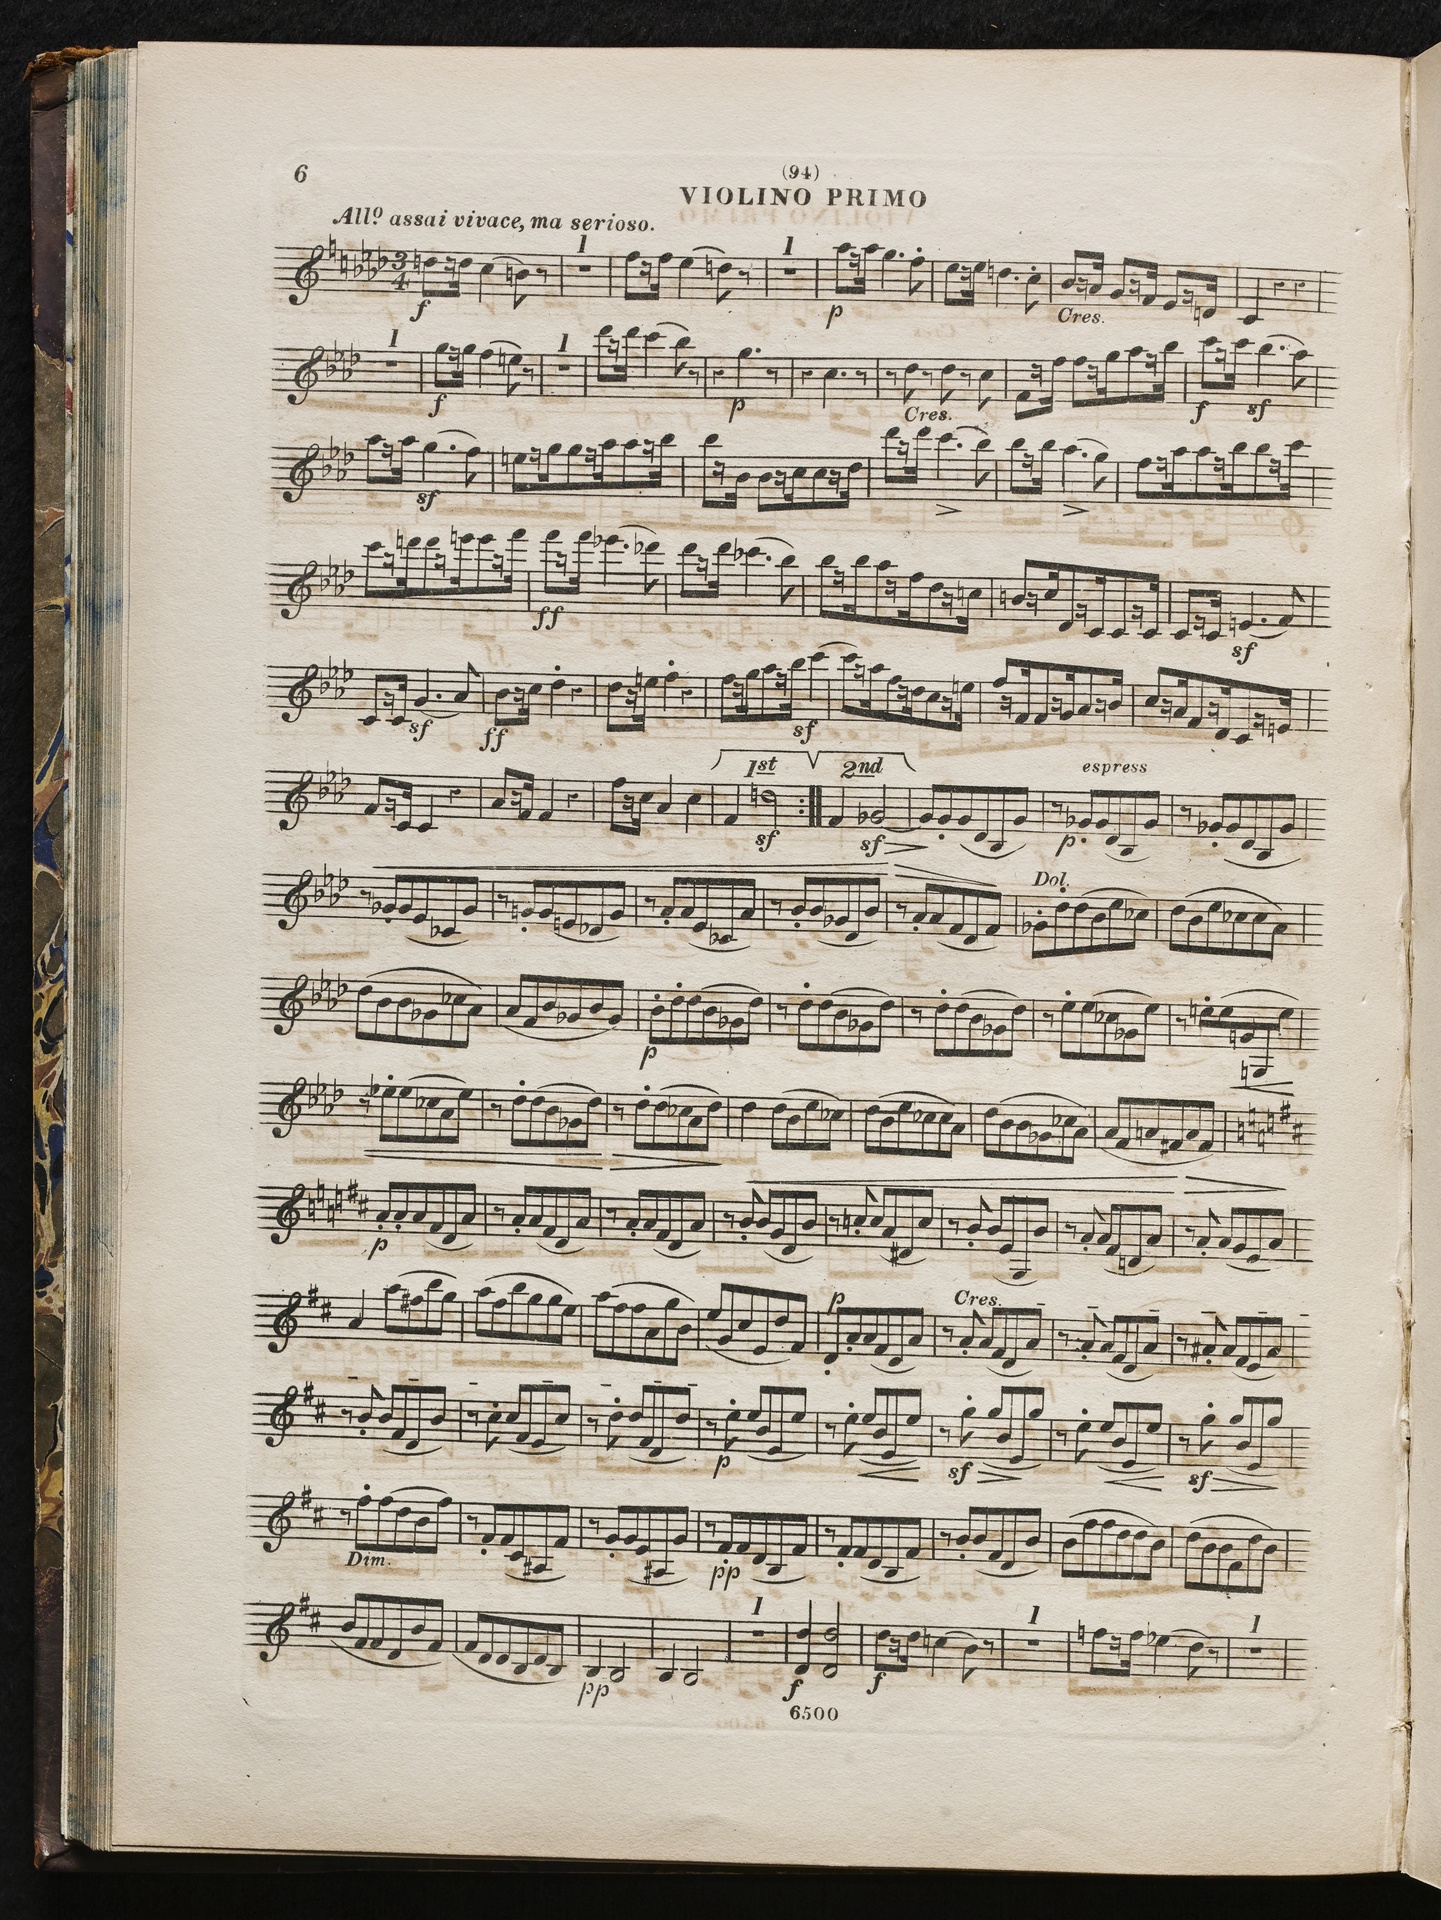 6
(94)
VIOLINO PRIMO
All.º assai vivace, ma serioso.
1 1
f p Cres.
1 1
f p Cres. f sf
sf
ff sf
sf ff sf
1st 2nd espress
sf sf p
Dol.
p
p
p Cres.
p sf sf
Dim. pp
1 1 1
pp f f
6500